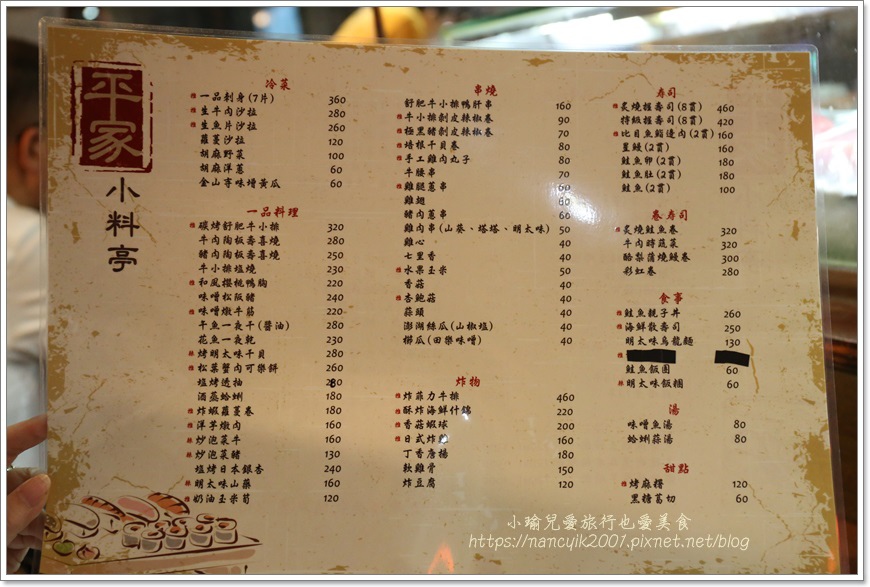 平家
小料亭
冷菜
推 一品刺身(7片) 360
推 生牛肉沙拉 280
推 生魚片沙拉 260
蘿蔓沙拉 120
胡麻野菜 100
胡麻洋蔥 60
金山亭味增黃瓜 60
一品料理
推 碳烤舒肥牛小排 320
牛肉陶板壽喜燒 280
豬肉陶板壽喜燒 250
牛小排塩燒 230
推 和風櫻桃鴨胸 220
味噌松阪豬 240
推 味噌燉牛筋 220
午魚一夜干(醬油) 280
花魚一夜乾 230
辣 烤明太味干貝 280
推 松葉蟹肉可樂餅 260
塩烤透抽
酒蒸蛤蜊 180
推 炸蝦蘿蔓卷 180
推 洋芋燉肉 160
辣 炒泡菜牛 160
辣 炒泡菜豬 130
塩烤日本銀杏 240
辣 明太味山藥 160
推 奶油玉米筍 120
串燒
舒肥牛小排鴨肝串 160
推 牛小排剝皮辣椒卷 90
推 極黑豬剝皮辣椒卷 70
推 培根干貝卷 80
推 手工雞肉丸子 80
牛腰串 70
推 雞腿蔥串 60
雞翅 60
豬肉蔥串 60
雞肉串(山葵、塔塔、明太味) 50
雞心 40
七里香 40
推 水果玉米 50
香菇 40
推 杏鮑菇 50
蒜頭 40
澎湖絲瓜(山椒塩) 40
櫛瓜(田樂味噌) 40
炸物
推 炸菲力牛排 460
推 酥炸海鮮什錦 220
推 香菇蝦球 200
推 日式炸 160
丁香唐揚 180
軟雞骨 150
炸豆腐 120
壽司
推 炙燒握壽司(8貫) 460
推 特級握壽司(8貫) 420
推 比目魚鰭邊肉(2貫) 160
星鰻(2貫) 160
鮭魚卵(2貫) 180
鮭魚肚(2貫) 180
鮭魚(2貫) 100
卷壽司
推 炙燒鮭魚卷 320
牛肉時蔬菜 320
酪梨蒲燒鰻卷 300
彩虹卷 280
食事
推 鮭魚親子丼 260
推 海鮮散壽司 250
明太味烏龍麵 130
鮭魚飯團 60
辣 明太味飯糰 60
湯
味噌魚湯 80
蛤蜊蒜湯 80
甜點
推 烤麻糬 120
黑糖葛切 60
小瑜兒愛旅行也愛美食
https://nancyik2001.pixnet.net/blog